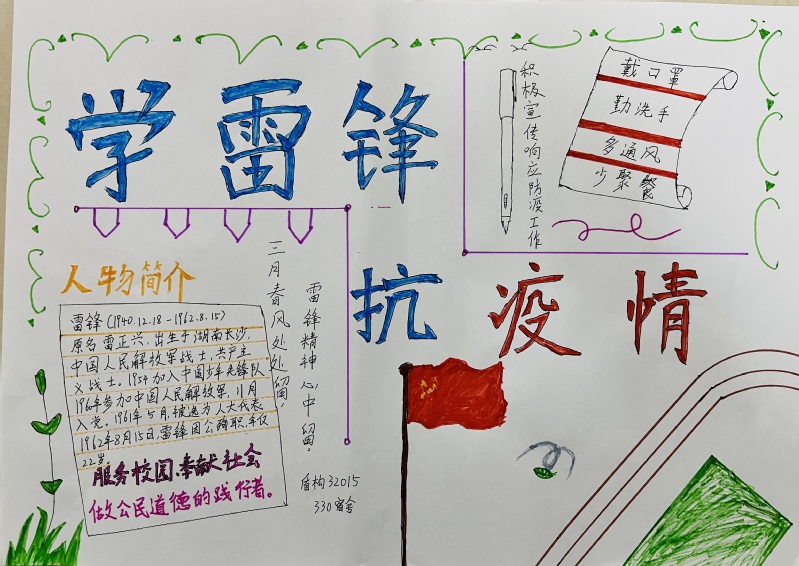 学雷锋
抗疫情
积极宣传响应防疫工作
戴口罩
勤洗手
多通风
少聚餐
人物简介
雷锋(1940.12.18-1962.8.15)
原名雷正兴,出生于湖南长沙,
中国人民解放军战士,共产主
义战士。1954加入中国少年先锋队
1960年参加中国人民解放军,11月
入党。1961年5月,被选为人大代表
1962年8月15日,雷锋因公殉职,年仅
22岁。
服务校园,奉献社会
做公民道德的践行者。
三月春风处处留,
雷锋精神心中留。
盾构32015
330宿舍